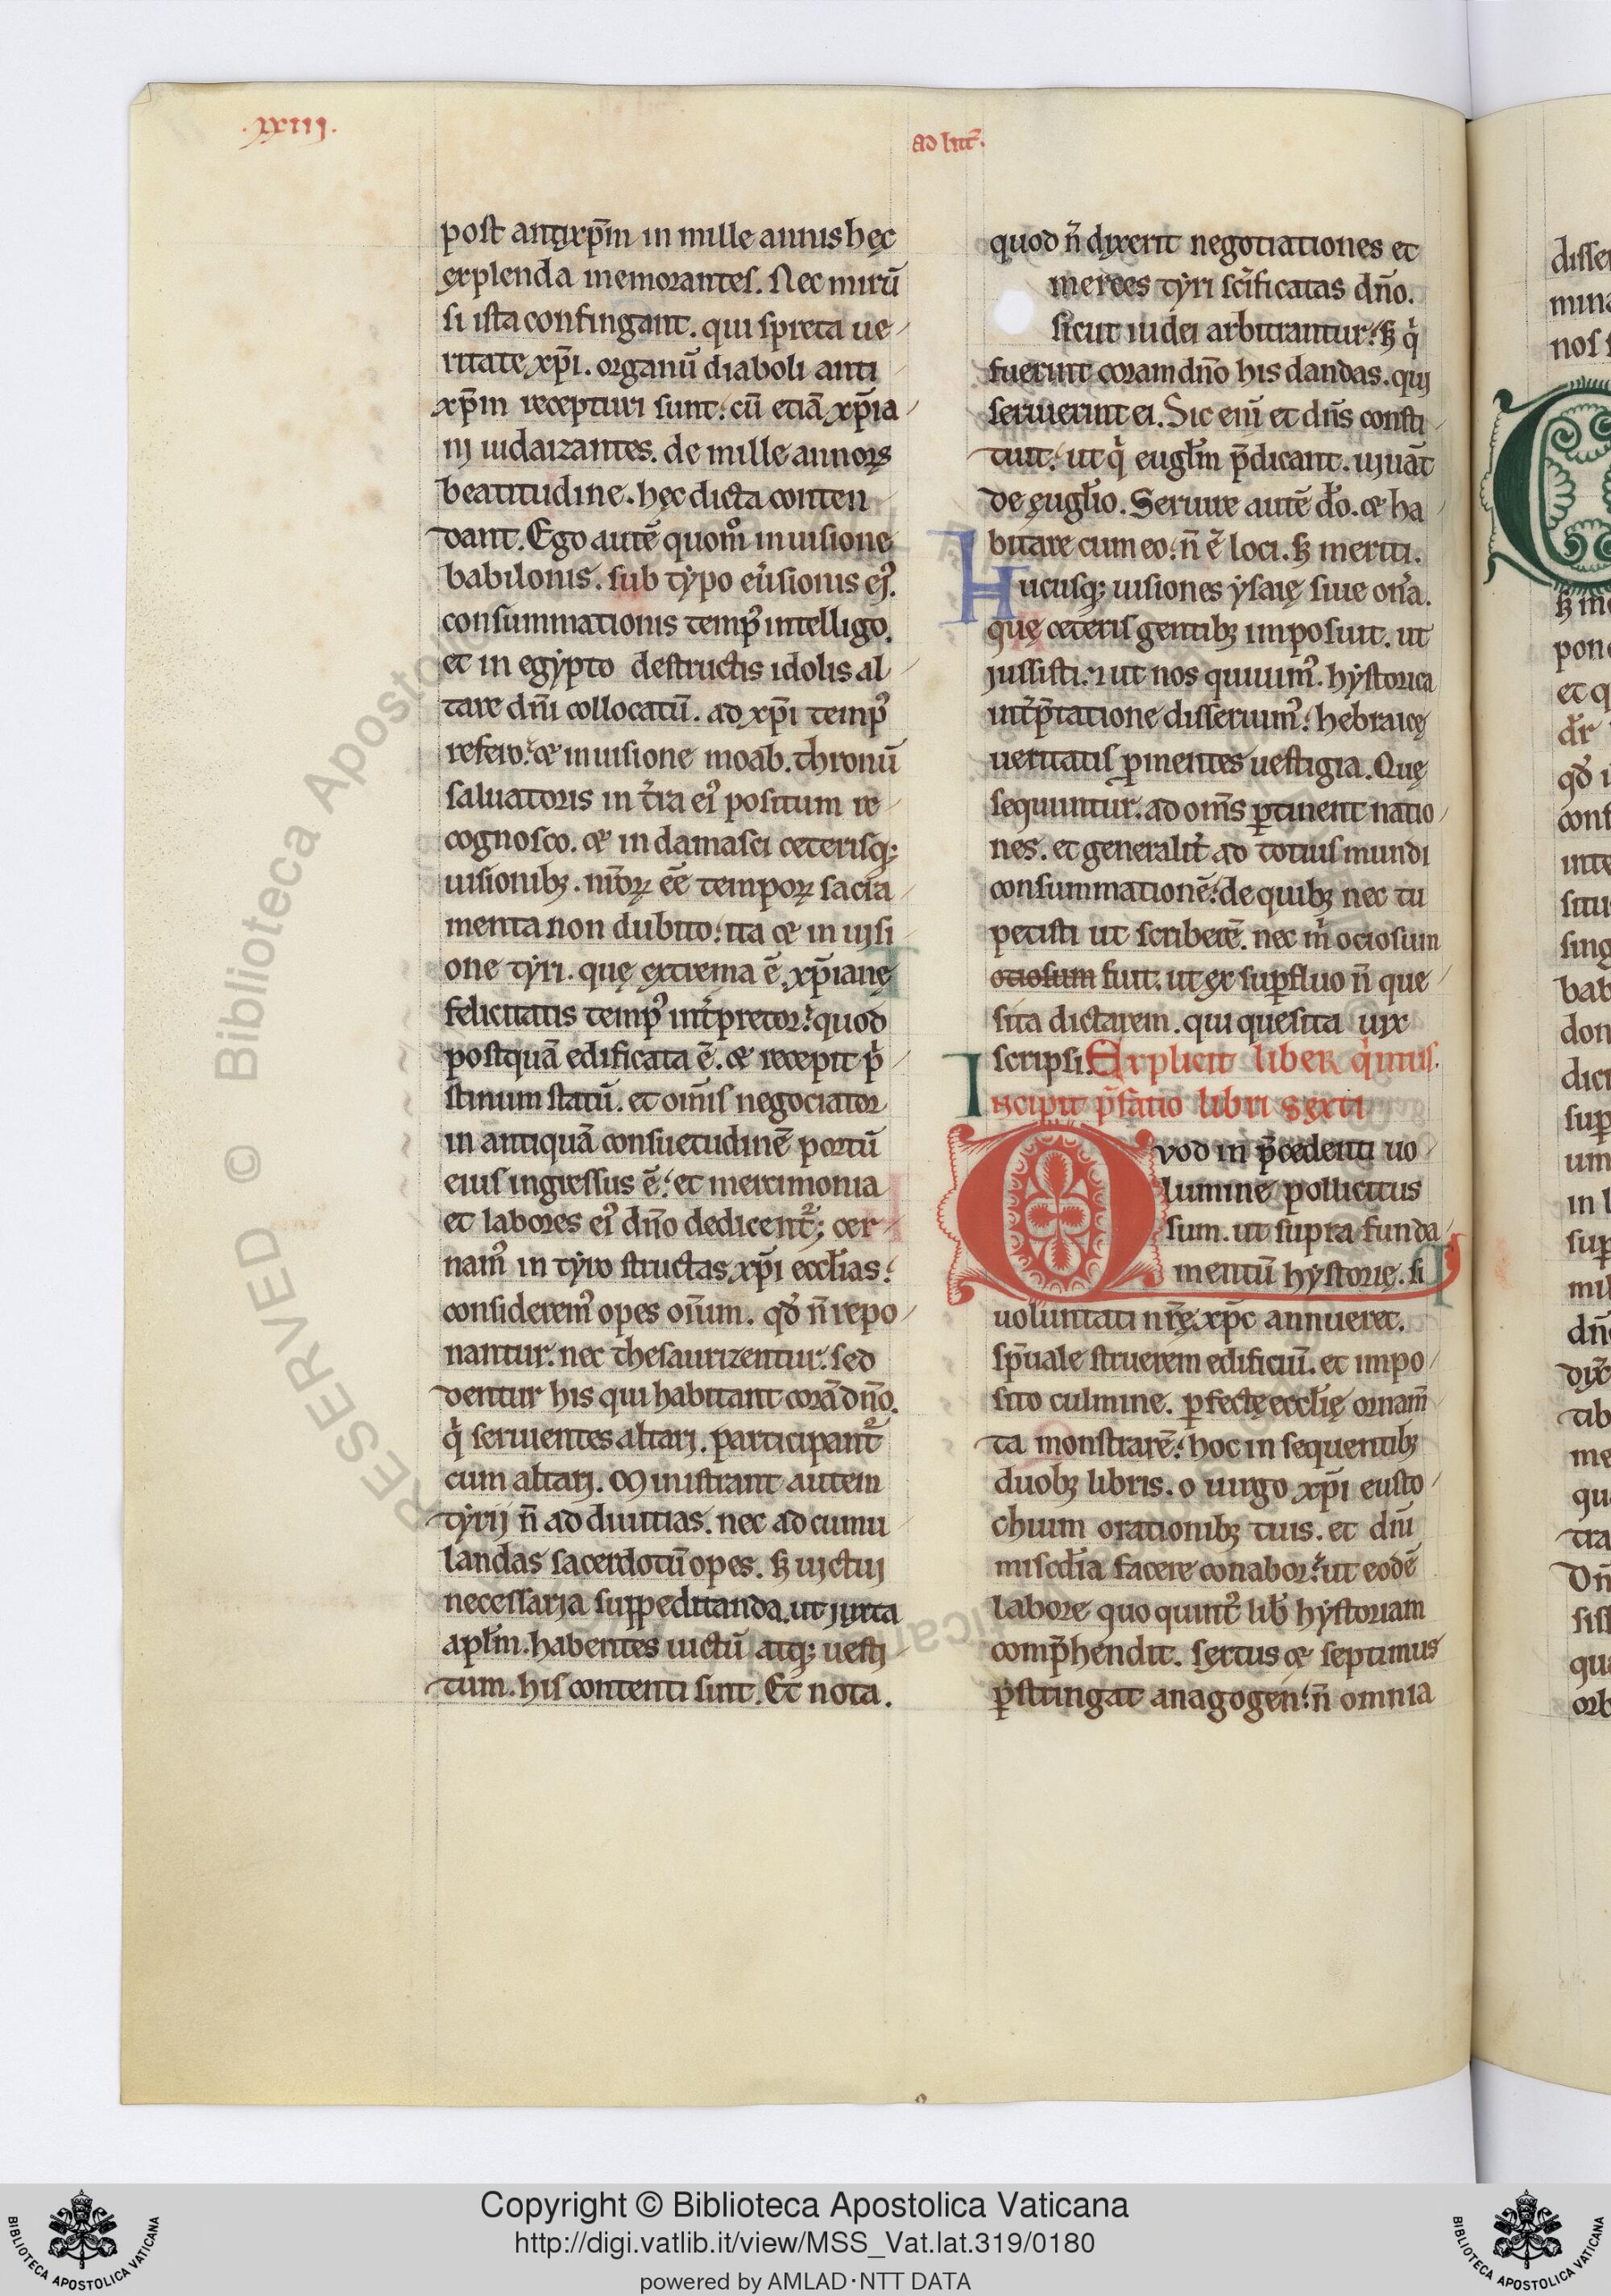 .xxiij.
ad litt̃.
post antixp̄m in mille annis hęc
explenda memorantes. Nec mirū
si ista confingant. qui spreta ue
ritate xp̄i. organū diaboli anti
xp̄m recepturi sunt: cū etiā xp̄ia
nj iudaizantes. de mille annoꝝ
beatitudine. hęc dicta conten
dant. Ego autē quom̊ in uisione
babilonis. sub typo eu͛sionis ei᷒.
consummationis temp᷒ intelligo.
et in egypto destructis idolis al
tare dn̄i collocatū. ad xp̄i temp᷒
refero: & in uisione moab. thronū
saluatoris in t͛ra ei᷒ positum re
cognosco. & in damasci ceterisq;
uisionibꝫ. n̄roꝝ eē̄ tempoꝝ sacra
menta non dubito: ita & in uisi
one tyri. quę extrema ē. xp̄ianę
felicitatis temp᷒ int͛pretor: quod
postquā edificata ē. & recepit p͛
stinum statū. et om̄is negociator
in antiquā consuetudinē portū
eius ingressus ē: et mercimonia
et labores ei᷒ dn̄o dedicent᷑; cer
nam᷒ in tyro structas xp̄i eccl̄ias:
considerem᷒ opes om̄ium. qđ n̄ repo
nantur. nec thesaurizentur. sed
dentur his qui habitant corā dn̄o.
qͥ seruientes altari. participant᷑
cum altari. Ministrant autem
tyrij n̄ ad diuitias. nec ad cumu
landas sacerdotū opes. sꝫ uictuj
necessaria suppeditanda. ut juxta
apl̄m. habentes uictū atq; uesti
tum. his contenti sint. Et nota.
quod n̄ dixerit negotiationes et
merces tyri sc̄ificatas dn̄o.
sicut iudei arbitrantur: sꝫ qͥ
fuerint coram dn̄o his dandas. quj
seruierint ei. Sic enī et dn̄s consti
tuit: ut qͥ eugl̄m p̄dicant. uiuāt
de eugl̄io. Seruire autē do̅. & ha
bitare cum eo: n̄ ē loci. sꝫ meriti.
Hucusq; uisiones ysaię siue on͛a.
quę ceteris gentibꝫ imposuit. ut
jussisti: ⁊ ut nos quiuim᷒. hystorica
int͛p̄tatione disseruim᷒: hebraicę
ueritatis p̱mentes uestigia. Quę
sequuntur. ad om̄s ꝑtinent natio
nes. et generalit͛ ad totius mundi
consummationē: de quibꝫ nec tu
petisti ut scriberē. nec mͥ ociosum
otiosum fuit. ut ex suꝑfluo n̄ que
sita dictarem. qui quesita uix
scripsi. Explicit liber qͥntus.
Incipit p̄fatio libri sexti
Quod in p̄cedenti uo
lumine pollicitus
sum. ut supra funda
mentū hystorię. si
uoluntati nr̄ę xp̄c annueret.
sp̄uale struerem edificiū. et impo
sito culmine. ꝑfectę eccl̄ię ornam̄
ta monstrarē: hoc in sequentibꝫ
duobꝫ libris. o uirgo xp̄i eusto
chium orationibꝫ tuis. et dn̄i
misc̄dia facere conabor: ut eodē
labore quo quint᷒ lib̄ hystoriam
comp̄hendit. sextus & septimus
ꝑstringat anagogen: n̄ omnia
Copyright © Biblioteca Apostolica Vaticana
http://digi.vatlib.it/view/MSS_Vat.lat.319/0180
powered by AMLAD·NTT DATA